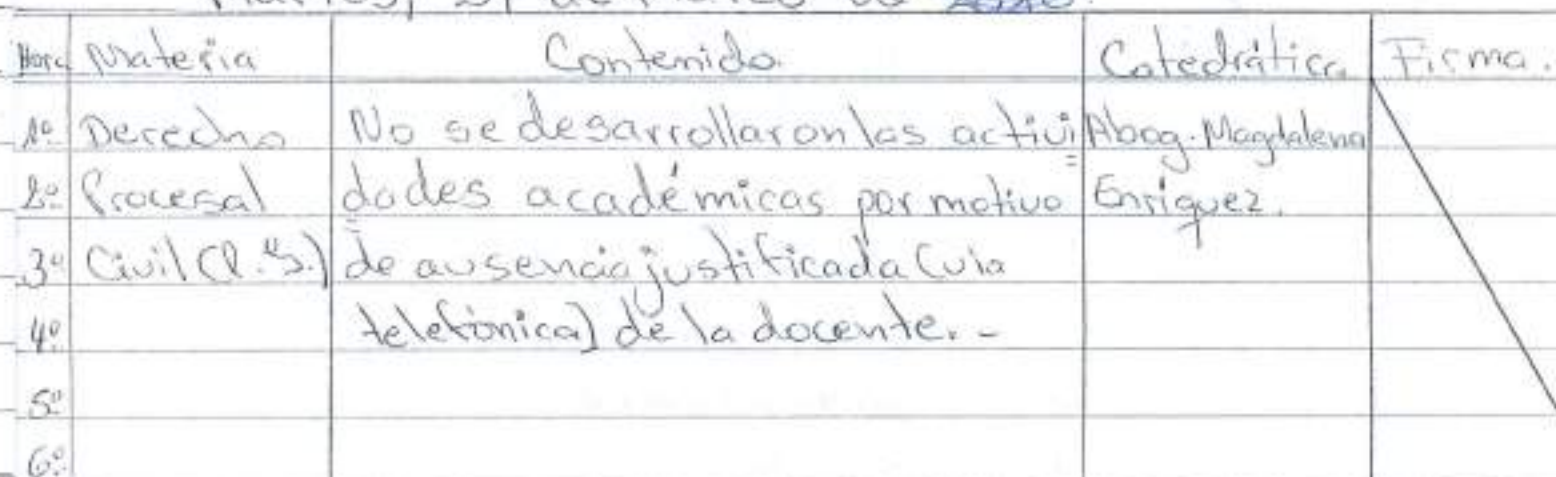 de
Hora Materia Contenido. Catedrática Firma.
1º Derecho No se desarrollaron las activi Abog. Magdalena
2º Procesal dades académicas por motivo Enríquez.
3º Civil de ausencia justificada (via
4º telefónica) de la docente. -
5º
6º